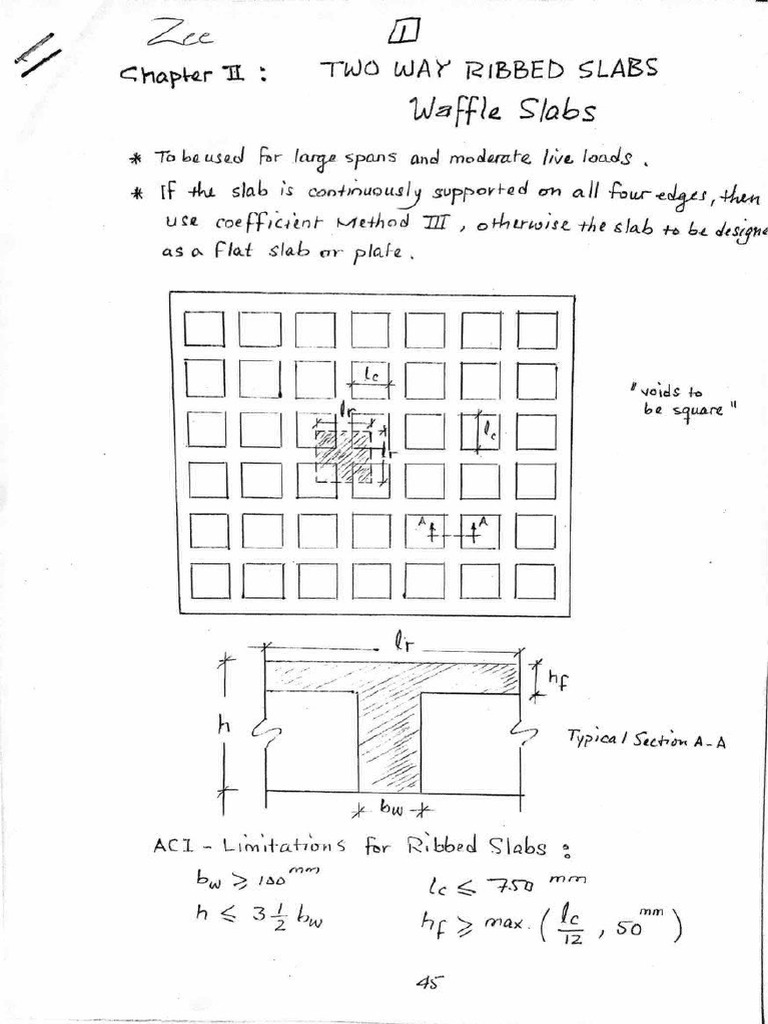 Zee
1
Chapter II : TWO WAY RIBBED SLABS
Waffle Slabs
* To be used for large spans and moderate live loads.
* If the slab is continuously supported on all four edges, then
use coefficient Method III, otherwise the slab to be designe
as a flat slab or plate.
lc
"voids to
be square"
lr
lc
lr
A A
lr
hf
h
Typical Section A-A
bw
ACI - Limitations for Ribbed Slabs :
bw ≥ 100 mm lc ≤ 750 mm
h ≤ 3 1/2 bw hf ≥ max. ( lc/12 , 50 mm )
45